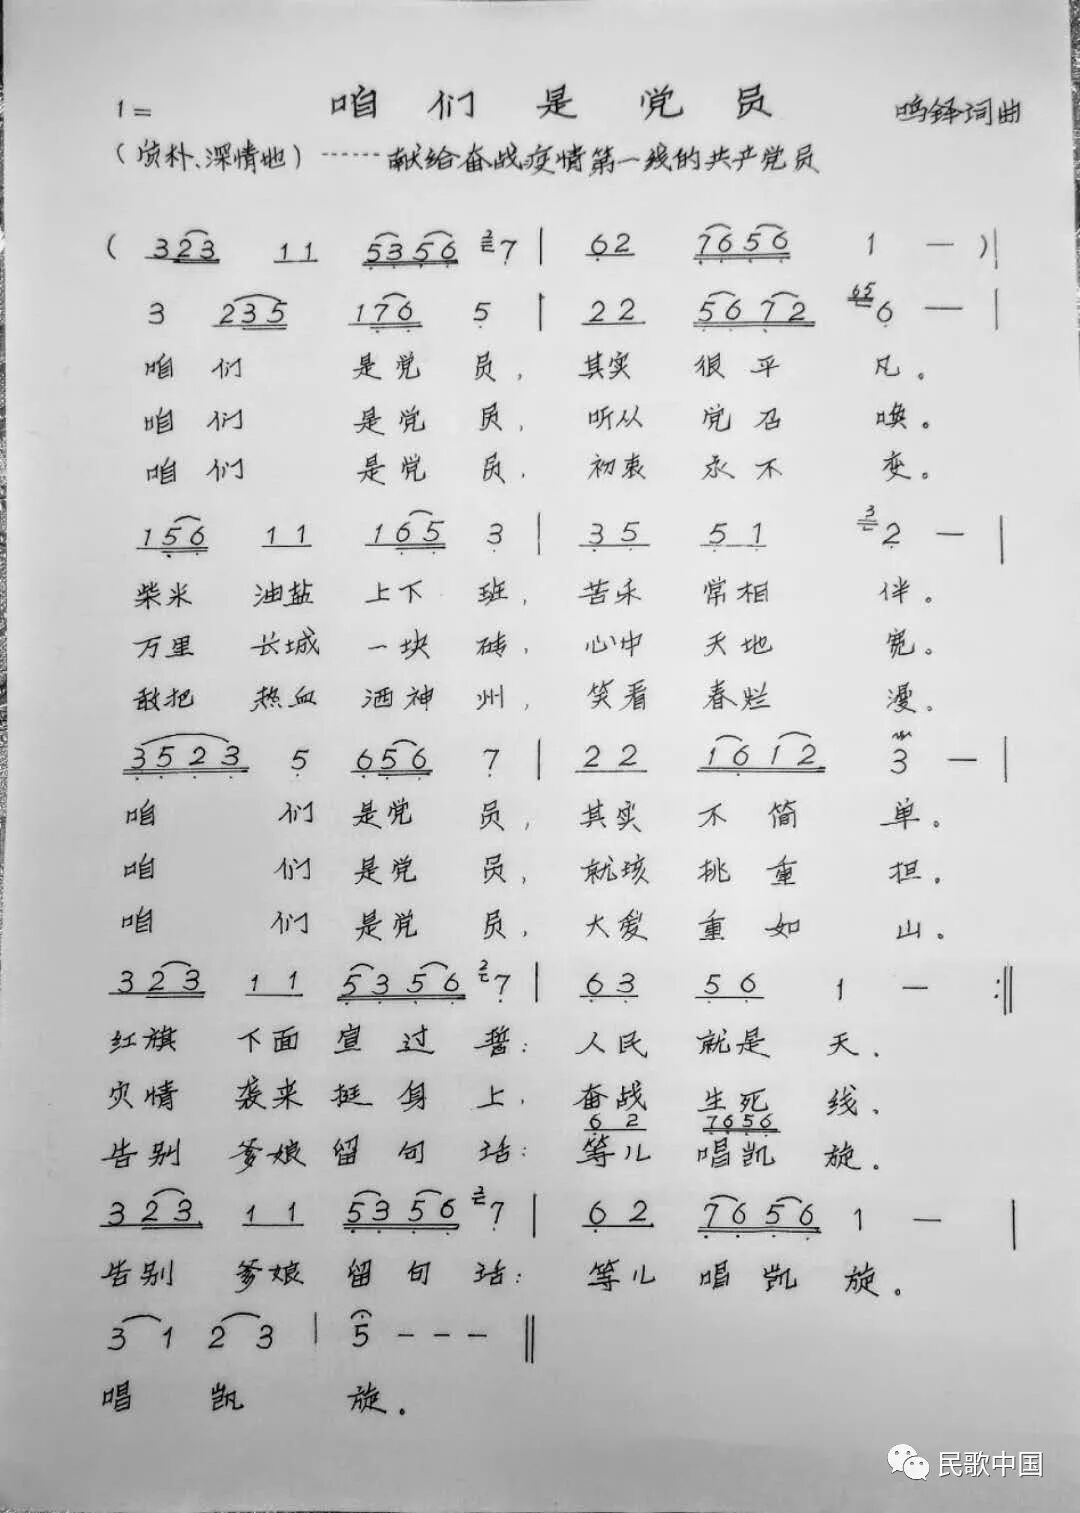 1= 咱们是党员 鸣铎词曲
(质朴、深情地)······献给奋战疫情第一线的共产党员
( 323 11 5356 27 | 62 7656 1 — )|
3 235 176 5 | 22 5672 656 — |
咱们是党员，其实很平凡。
咱们是党员，听从党召唤。
咱们是党员，初衷永不变。
156 11 165 3 | 35 51 32 — |
柴米油盐上下班，苦乐常相伴。
万里长城一块砖，心中天地宽。
敢把热血洒神州，笑看春烂漫。
3523 5 656 7 | 22 1612 3 — |
咱们是党员，其实不简单。
咱们是党员，就该挑重担。
咱们是党员，大爱重如山。
323 11 5356 27 | 63 56 1 — :||
红旗下面宣过誓：人民就是天。
灾情袭来挺身上，奋战生死线。
62 7656
告别爹娘留句话：等儿唱凯旋。
323 11 5356 27 | 62 7656 1 — |
告别爹娘留句话：等儿唱凯旋。
31 23 | 5 - - - ||
唱凯旋。
民歌中国